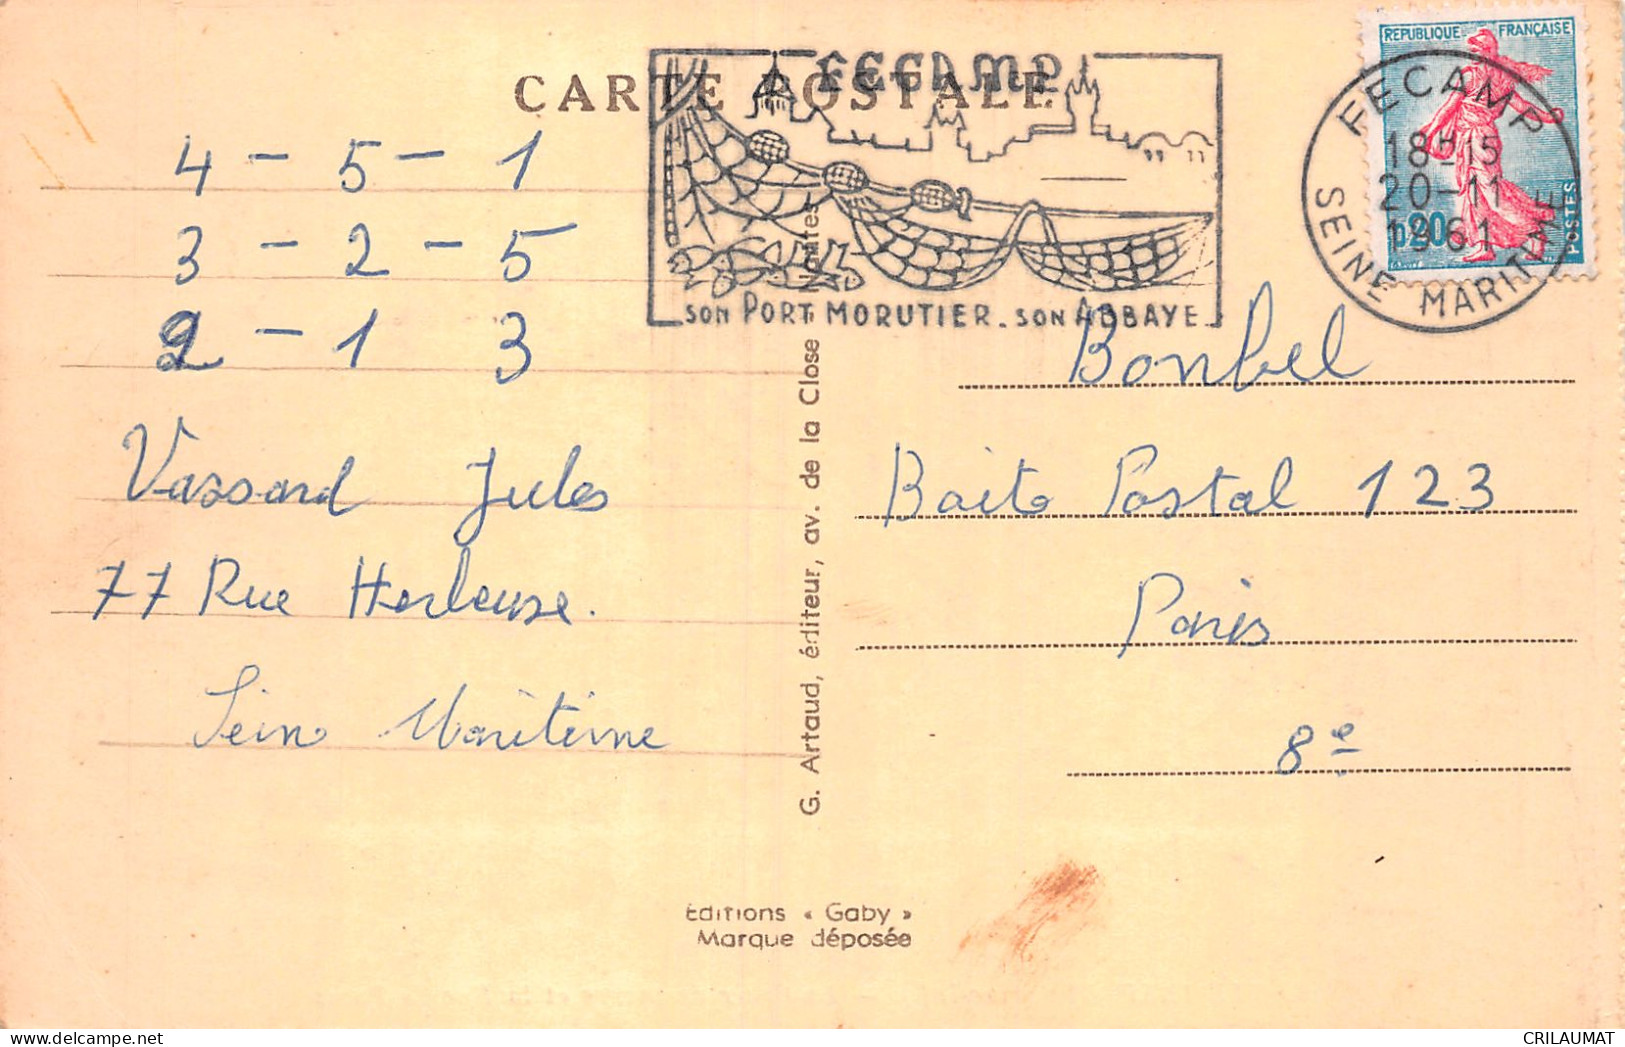 CARTE POSTALE
FECAMP
SON PORT MORUTIER. SON ABBAYE.
REPUBLIQUE FRANÇAISE
0,20
POSTES
FECAMP
18H15
20-11
1961
SEINE MARITIME
4 - 5 - 1
3 - 2 - 5
2 - 1 3
Vassard Jules
77 Rue
Seine Maritime
G. Artaud, éditeur, av. de la Close Nantes
Bonbel
Boite Postal 123
Paris
8e
Editions « Gaby »
Marque déposée
CRILAUMAT